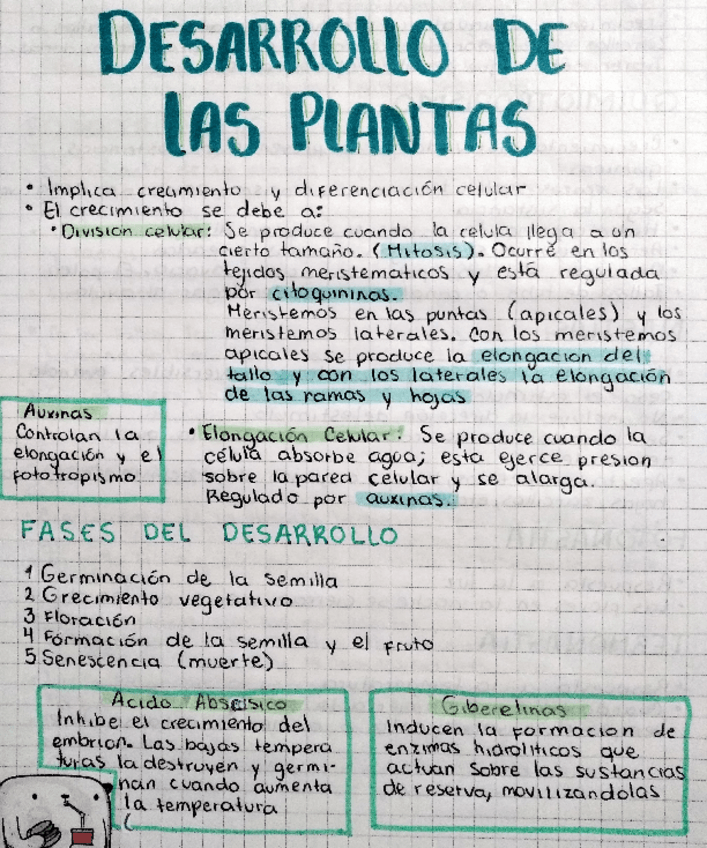 DESARROLLO DE
LAS PLANTAS
• Implica crecimiento y diferenciación celular
• El crecimiento se debe a:
• División celular: Se produce cuando la celula llega a un
cierto tamaño. (Mitosis). Ocurre en los
tejidos meristematicos y está regulada
por citoquininas.
Meristemos en las puntas (apicales) y los
meristemos laterales. Con los meristemos
apicales se produce la elongacion del
tallo y con los laterales la elongación
de las ramas y hojas
Auxinas
Controlan la
elongación y el
fototropismo
• Elongación Celular: Se produce cuando la
célula absorbe agua; esta ejerce presion
sobre la pared celular y se alarga.
Regulado por auxinas.
FASES DEL DESARROLLO
1 Germinación de la semilla
2 Crecimiento vegetativo
3 Floración
4 Formación de la semilla y el fruto
5 Senescencia (muerte)
Acido Abscisico
Inhibe el crecimiento del
embrion. Las bajas tempera
turas la destruyen y germi-
nan cuando aumenta
la temperatura
Giberelinas
Inducen la formacion de
enzimas hidroliticos que
actuan sobre las sustancias
de reserva, movilizandolas